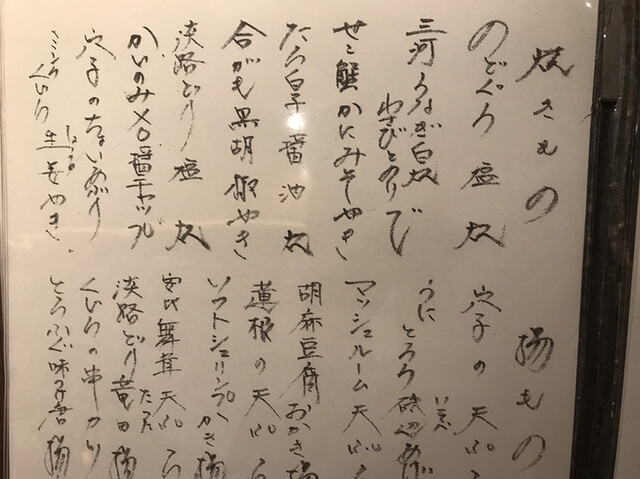 焼きもの
のどぐろ 塩焼
三河うなぎ白焼
わさびとのりで
せこ蟹かにみそやき
たら白子醤油焼
合がも黒胡椒やき
淡路どり 塩焼
かいのみXO醤チャップル
穴子のちょいあぶり
ミンククじら生姜やき
しょうが
揚もの
穴子の天ぷら
うにとろろ磯辺あげ
いそべ
マッシュルーム天ぷら
胡麻豆腐おかき揚
蓮根の天ぷら
ソフトシュリンプ
かき揚
舞茸天ぷら
淡路どり竜田揚
たつた
くじらの串カツ
とらふぐ味子唐揚